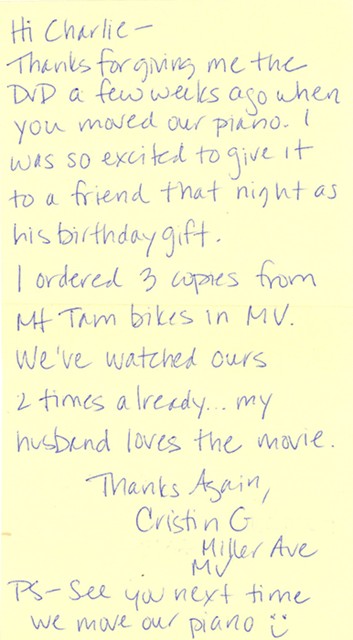 Hi Charlie –
Thanks for giving me the
DVD a few weeks ago when
you moved our piano. I
was so excited to give it
to a friend that night as
his birthday gift.
I ordered 3 copies from
Mt Tam bikes in MV.
We've watched ours
2 times already... my
husband loves the movie.
Thanks Again,
Cristin G
Miller Ave
MV
PS – See you next time
we move our piano ☺